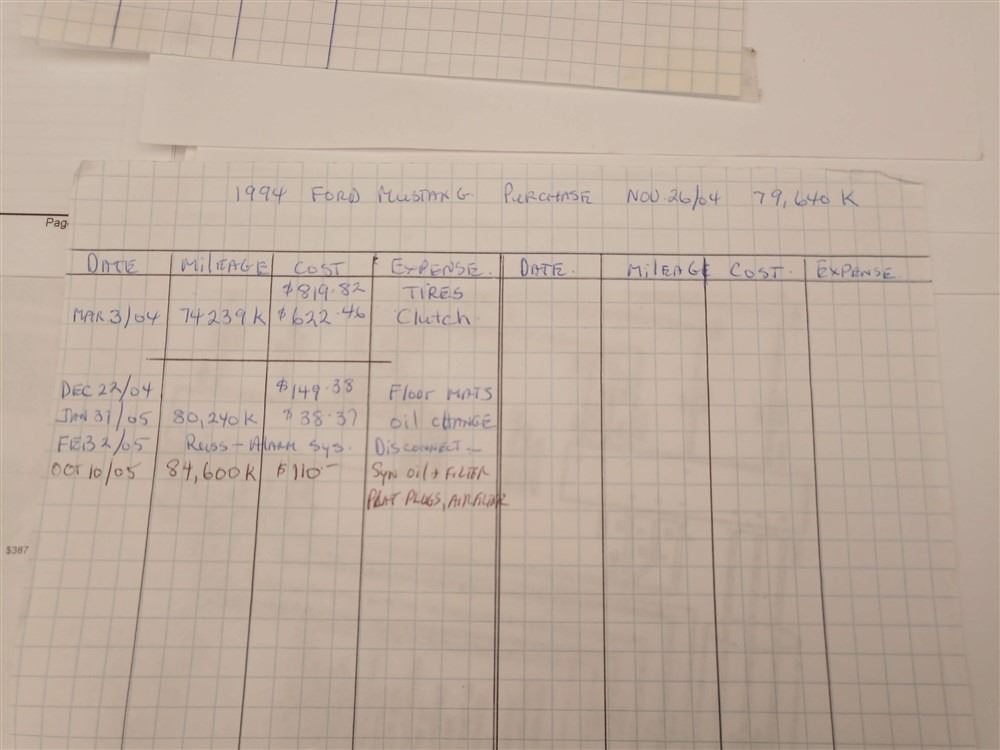 1994 FORD MUSTANG. PURCHASE NOV. 26/04 79,640 K
Pag
DATE MILEAGE COST EXPENSE. DATE. MILEAGE COST. EXPENSE
$819.82 TIRES
MAR 3/04 74239K $622.46 Clutch.
DEC 22/04 $149.38 Floor MATS
JAN 31/05 80,240K $38.37 oil CHANGE
FEB 2/05 Russ - Alarm Sys. Disconnect -
OCT 10/05 84,600K $110- Syn oil + FILTER
PLAT PLUGS, AIR FILTER
$387